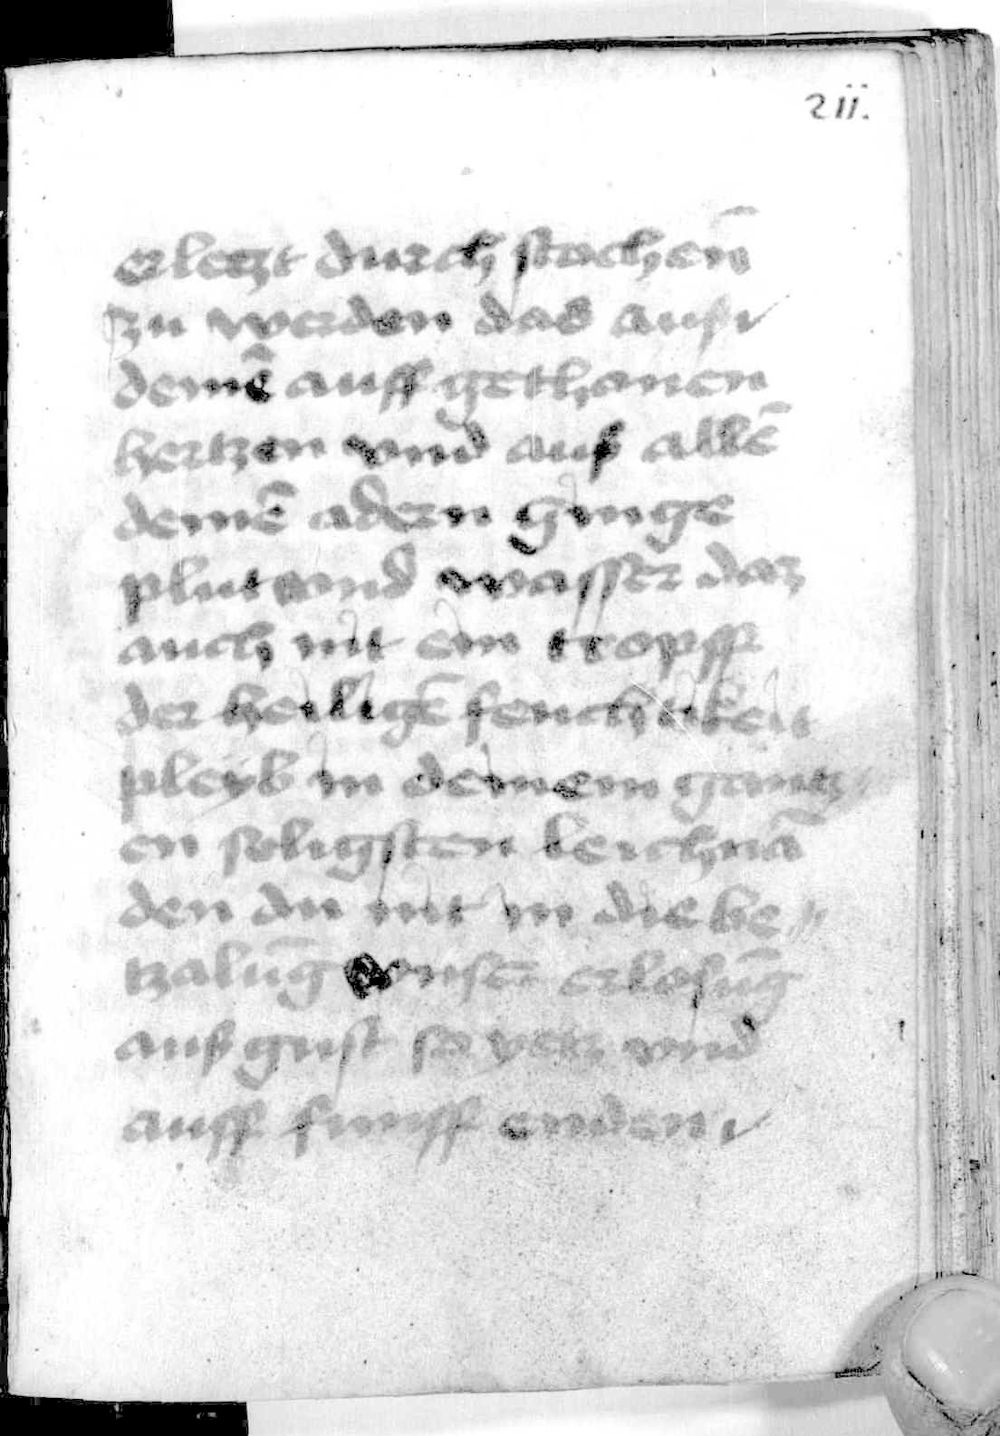 211.
erletzt durch stochen̄
zu werden das auß
deinē auff gethanen
hertzen vnd auß allē
deinē adern ginge
plut vnd wasser daz
auch nit ein tropff
der heiligē feuchtikeit
pleyb in deinem gantz
en seligsten leichnā
den du mit in die be〃
tzalūg vnser erlosūg
auß gust so yetz vnd
auff funff enden